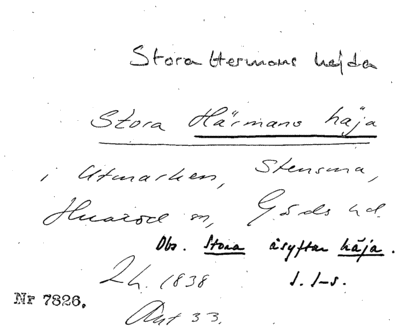 Stora Hermans hejda
Stora Härmans häja
i Utmarken, Stensma,
Huaröd sn, Gärds hd.
Obs. Stora åsyftar häja.
Lh. 1838 J. J-s.
Nr 7826.
Ant 33.